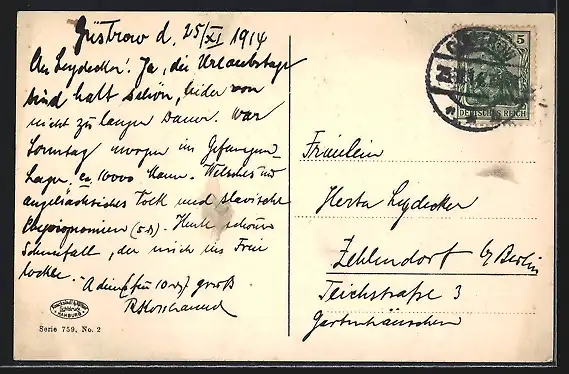 Güstrow d. 25/XI 1914
An Leydecker! Ja, die Urlaubstage
sind halt schön, leider von
nicht zu langer Dauer. War
Sonntag morgen im Gefangen-
Lager, ca 10000 Mann. Welsches und
angelsächsisches Volk und slavische
Heute schöner
Schneefall, der mich ins Freie
lockte.
GÜSTROW
5
DEUTSCHES REICH
Fräulein
Herta Leydecker
Zehlendorf b/Berlin
Teichstraße 3
Gartenhäuschen
HAMBURG
Serie 759, No. 2